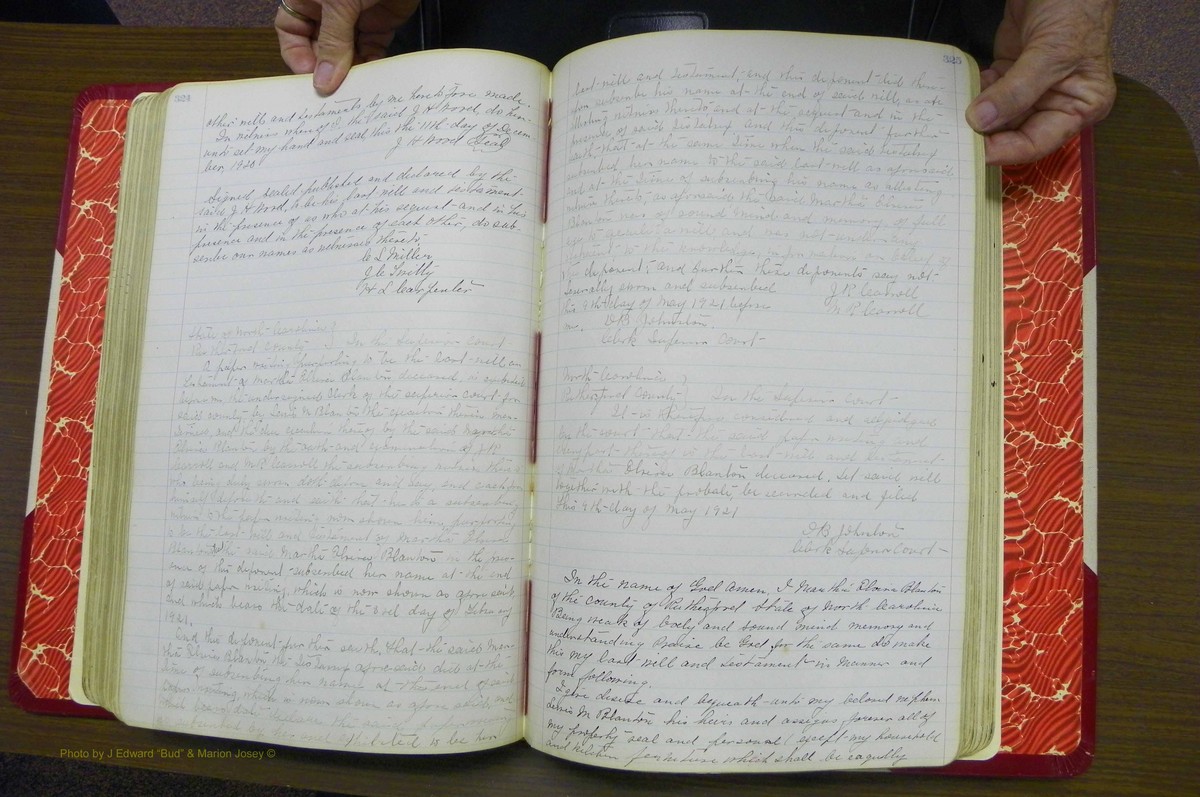 324
other will and testaments by me heretofore made.
In witness whereof I, the said J H Wood, do here
unto set my hand and seal this the 11th day of Decem
ber, 1920
J H Wood (Seal)
Signed sealed published and declared by the
said J H Wood, to be his last will and testament
in the presence of us who at his request and in his
presence and in the presence of each other, do sub-
scribe our names as witnesses thereto,
C L Miller
J C
H L Carpenter
State of North Carolina
Rutherford County } In the Superior Court
A paper writing purporting to be the last will an
testament of Martha Elvira Blanton deceased, is exhibited
before me the undersigned clerk of the superior court for
said county by Lewis M Blanton the executor therein men
tioned, and the due execution thereof by the said Martha
Elvira Blanton by the oath and examination of J R
Carroll and M R Carroll the subscribing witness thereto
who being duly sworn doth depose and say, and each for
himself deposeth and saith that he is a subscribing
witness to the paper writing now shown him purporting
to be the last will and testament of Martha Elvira
Blanton that the said Martha Elvira Blanton in the pres-
ence of this deponent subscribed her name at the end
of said paper writing, which is now shown as aforesaid
and which bears the date of the day of
1921.
And the deponent further saith, that the said Mar-
tha Elvira Blanton the testatrix aforesaid did at the
time of subscribing her name at the end of said
paper writing which is now shown as aforesaid and
exhibited to be her
325
last will and testament, and this deponent did there-
upon subscribe his name at the end of said will, as at-
testing witness thereto and at the request and in the
presence of said testatrix and this deponent further
saith, that at the same time when the said testatrix
subscribed her name to the said last will as aforesaid
and at the time of subscribing his name as attesting
witness thereto, as aforesaid the said Martha Elvira
Blanton was of sound mind and memory of full
age to execute a will and was not under any
restraint to the knowledge, information or belief of
deponent; and further these deponents say not
Severally sworn and subscribed J. R Carroll
this 9th day of May 1921 before M R Carroll
me. O B Johnston.
Clerk Superior Court
North Carolina
Rutherford County } In the Superior Court
It is therefore considered and adjudged
by the court that the said paper writing and
every part thereof is the last will and testament
of Martha Elvira Blanton deceased, let said will
together with the probate, be recorded and filed
this 9th day of May 1921
O B Johnston
Clerk Superior Court
In the name of God Amen, I Martha Elvira Blanton
of the county of Rutherford State of North Carolina
Being weak of body and sound mind memory and
understanding Praise be God for the same do make
this my last will and testament in manner and
form following.
I give devise and bequeath unto my beloved nephew
Lewis M Blanton his heirs and assigns forever all of
my property real and personal (except my household
and kitchen furniture which shall be equally
Photo by J Edward "Bud" & Marion Josey ©